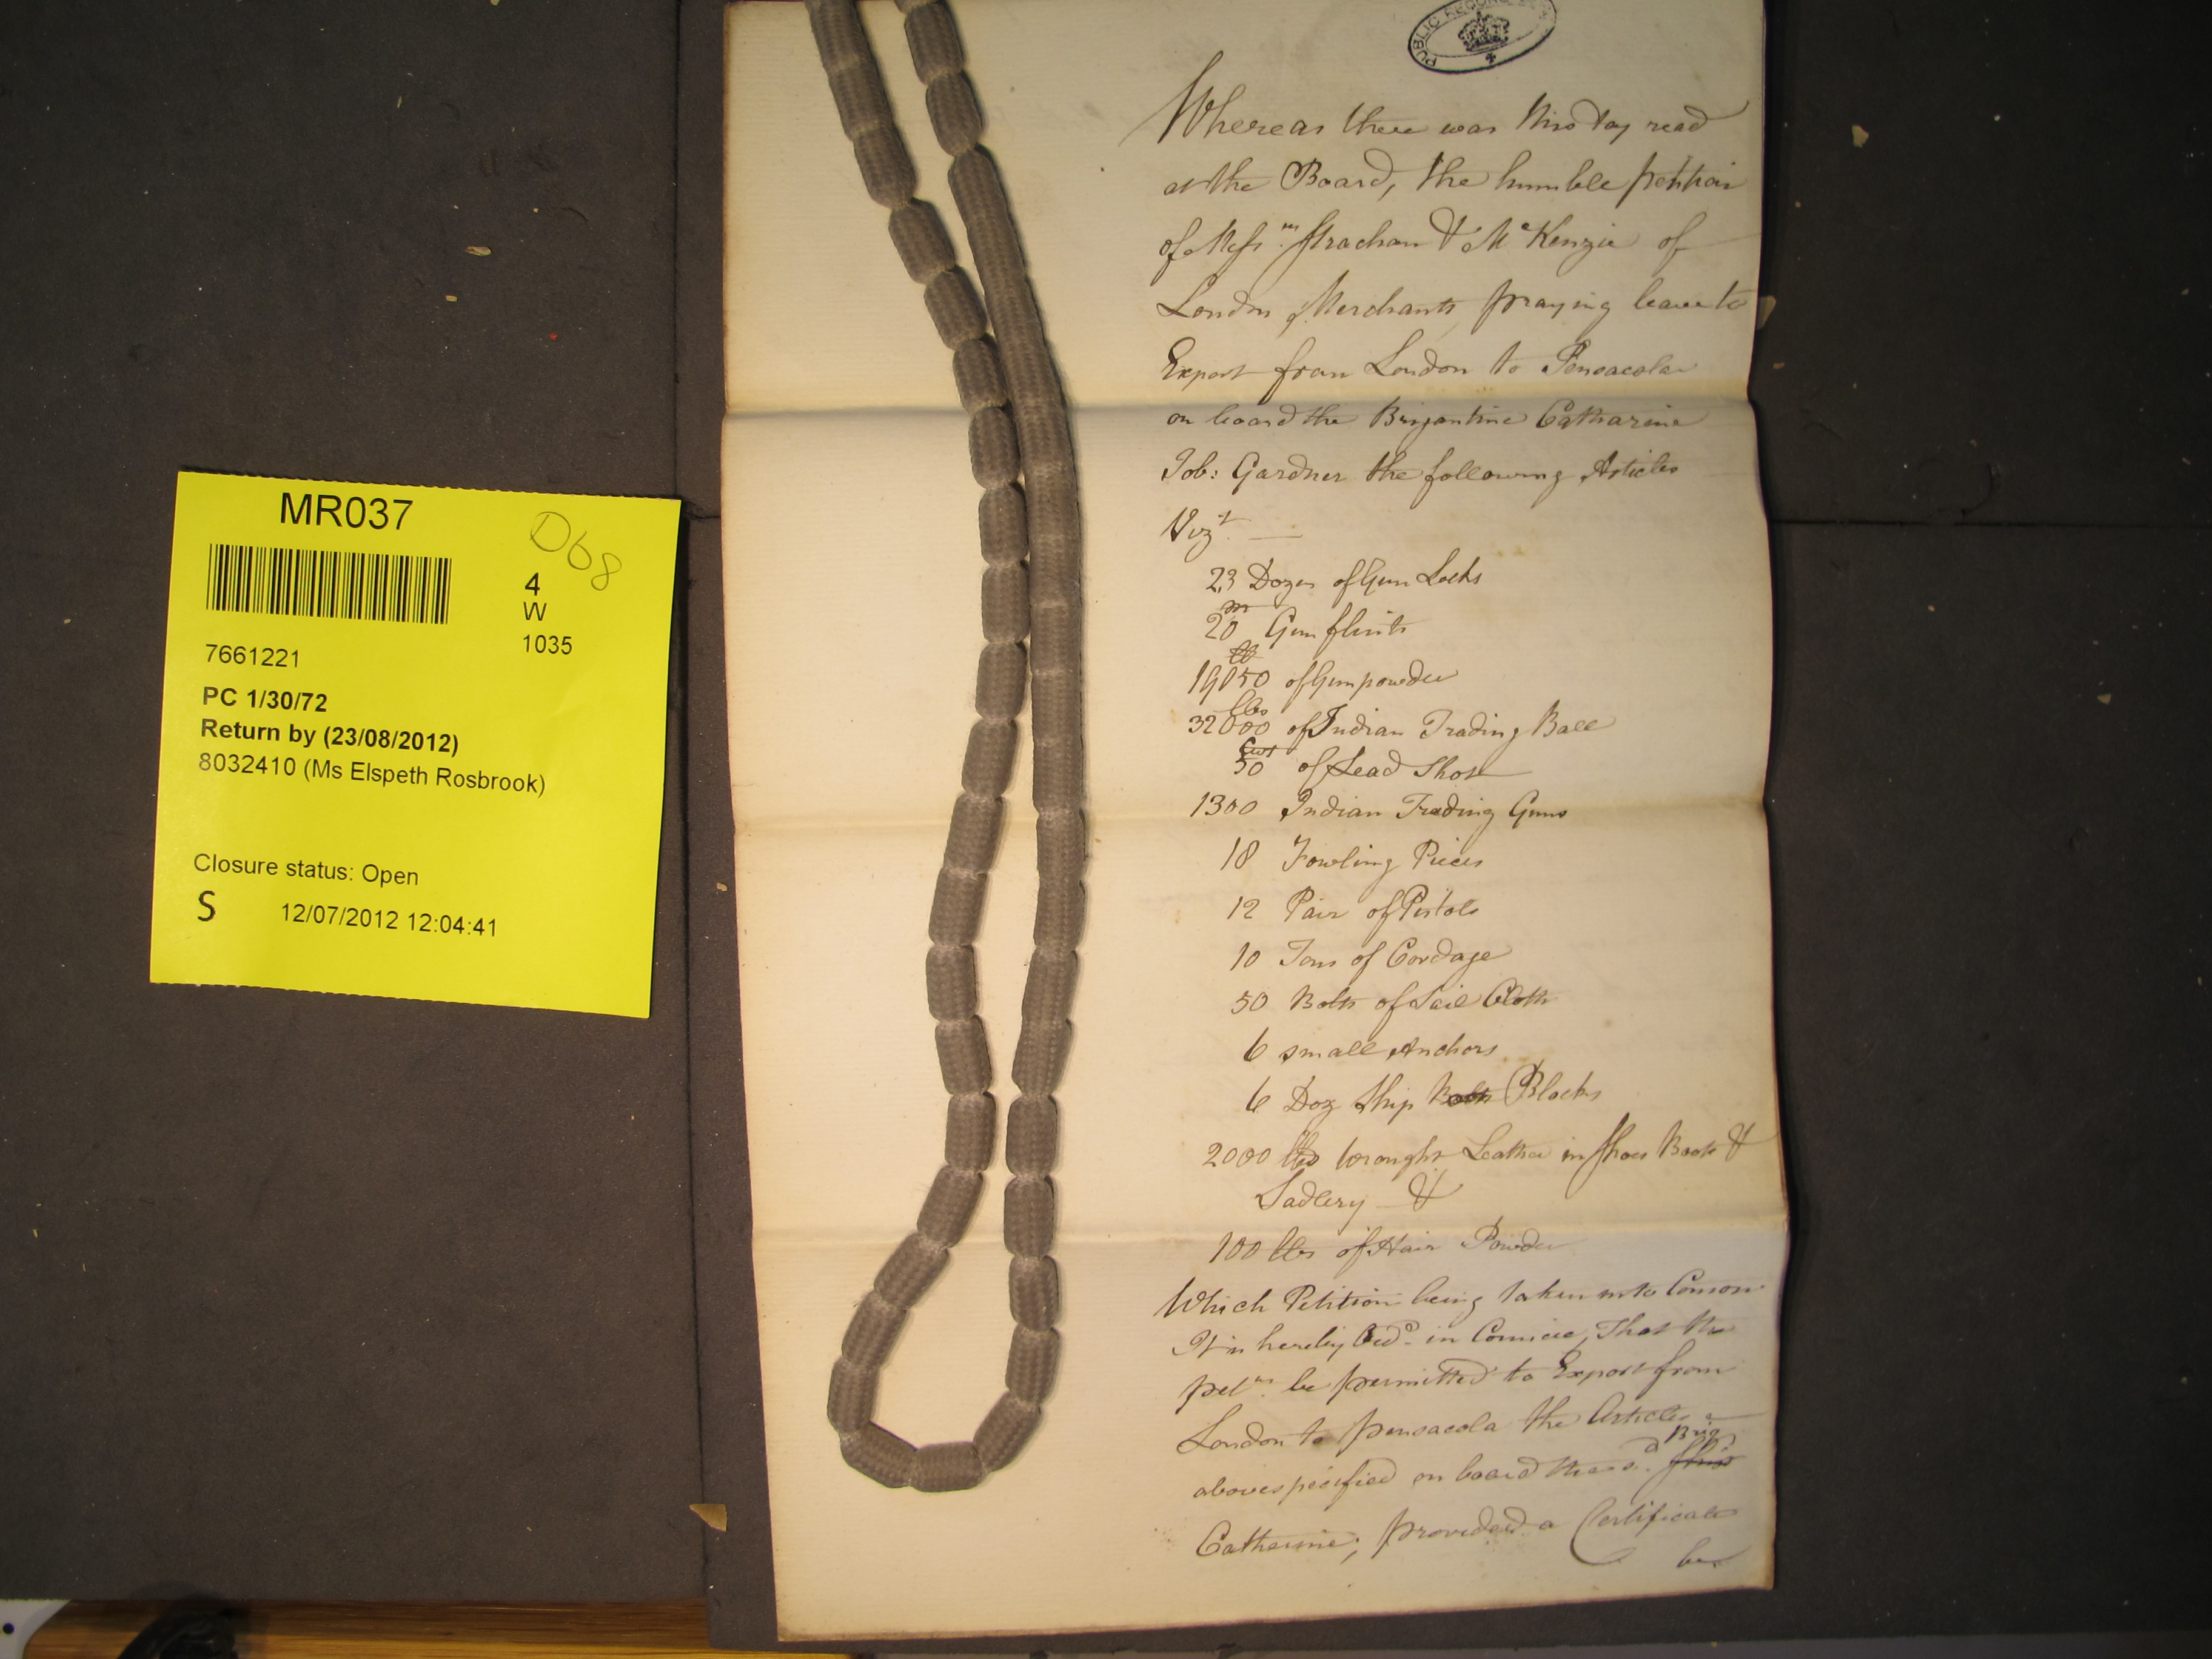 MR037
D68
4
W
1035
7661221
PC 1/30/72
Return by (23/08/2012)
8032410 (Ms Elspeth Rosbrook)
Closure status: Open
S 12/07/2012 12:04:41
PUBLIC RECORD
Whereas there was this day read
at the Board, the humble petition
of Messrs. Strachan & McKenzie of
London Merchants praying leave to
Export from London to Pensacola
on board the Brigantine Catharine
Job: Gardner the following Articles
Vizt.
23 Dozen of Gun Locks
20m Gun flints
19050 lb of Gunpowder
32000 lbs of Indian Trading Ball
50 Cwt of Lead Shot
1300 Indian Trading Guns
18 Fowling Pieces
12 Pair of Pistols
10 Tons of Cordage
50 Bolts of Sail Cloth
6 small Anchors
6 Doz Ship Blocks
2000 lbs wrought Leather in Shoes Boots &
Sadlery &
100 lbs of Hair Powder
Which Petition being taken into Conson
It is hereby Ord. in Council, That the
petrs. be permitted to Export from
London to pensacola the Articles
above specified on board the sd. Brig
Catherine; provided a Certificate
be